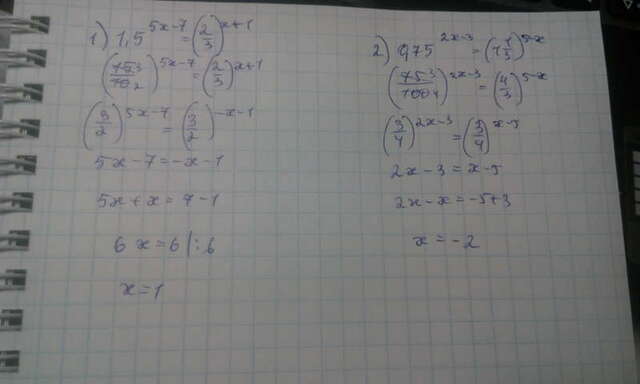 1) 1,5^(5x-7) = (2/3)^(x+1)
(15 3/10 2)^(5x-7) = (2/3)^(x+1)
(3/2)^(5x-7) = (3/2)^(-x-1)
5x-7=-x-1
5x+x=7-1
6x=6 |:6
x=1
2) 0,75^(2x-3) = (1 1/3)^(5-x)
(75 3/100 4)^(2x-3) = (4/3)^(5-x)
(3/4)^(2x-3) = (3/4)^(x-5)
2x-3=x-5
2x-x=-5+3
x=-2